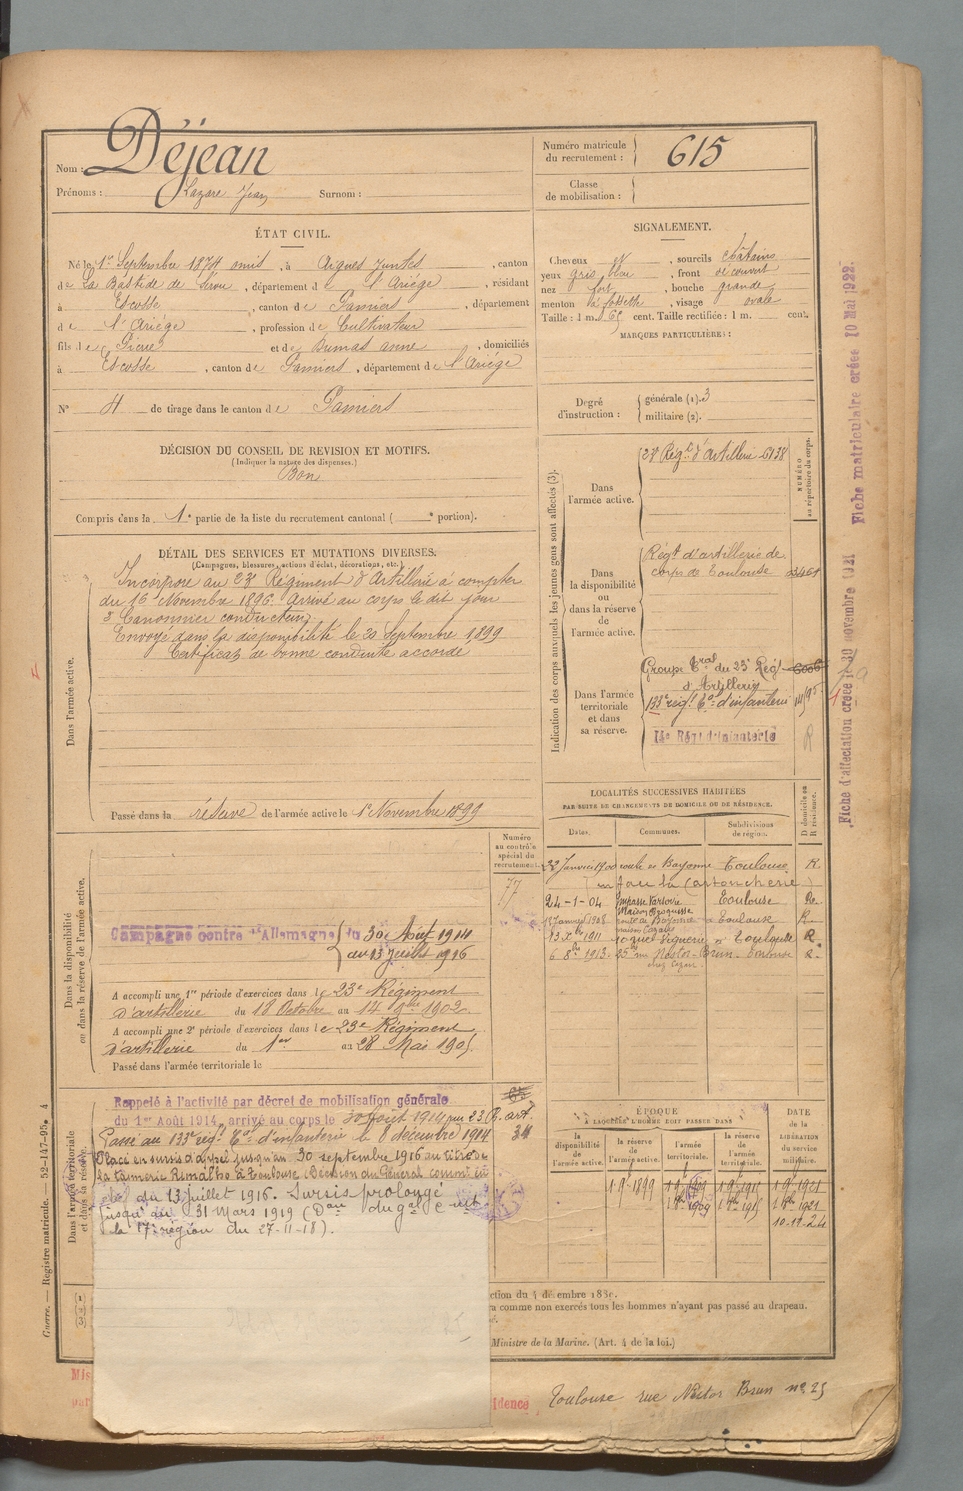 Nom : Déjean
Prénoms : Lazare Jean Surnom :
Numéro matricule du recrutement : 615
Classe de mobilisation :
ÉTAT CIVIL.
Né le 1er Septembre 1874 omis, à Aigues Juntes, canton
de La Bastide de Sérou, département de l'Ariége, résidant
à Escosse, canton de Pamiers, département
de l'Ariége, profession de Cultivateur
fils de Pierre et de Dumas anne, domiciliés
à Escosse, canton de Pamiers, département de l'Ariége
N° 4 de tirage dans le canton de Pamiers
SIGNALEMENT.
Cheveux, sourcils châtains
yeux gris bleu, front découvert
nez fort, bouche grande
menton à fossette, visage ovale
Taille : 1 m. 65 cent. Taille rectifiée : 1 m. cent.
MARQUES PARTICULIÈRES :
Degré d'instruction : générale (1). 3
militaire (2).
DÉCISION DU CONSEIL DE REVISION ET MOTIFS.
(Indiquer la nature des dispenses.)
Bon
Compris dans la 1e partie de la liste du recrutement cantonal ( e portion).
DÉTAIL DES SERVICES ET MUTATIONS DIVERSES.
(Campagnes, blessures, actions d'éclat, décorations, etc.)
Dans l'armée active.
Incorporé au 23e Régiment d'Artillerie à compter
du 16 Novembre 1896. Arrivé au corps le dit jour
2e Canonnier conducteur
Envoyé dans la disponibilité le 20 Septembre 1899
Certificat de bonne conduite accordé
Passé dans la réserve de l'armée active le 1er Novembre 1899
Indication des corps auxquels les jeunes gens sont affectés (3).
NUMÉRO au répertoire du corps.
Dans l'armée active.
23e Régt d'Artillerie 6138
Dans la disponibilité ou dans la réserve de l'armée active.
Régt d'artillerie de
corps de Toulouse 03461
Dans l'armée territoriale et dans sa réserve.
Groupe Tral du 23e Régt 6006
d'Artillerie
133e régt Tal d'infanterie
14e Régt d'Infanterie
LOCALITÉS SUCCESSIVES HABITÉES
PAR SUITE DE CHANGEMENTS DE DOMICILE OU DE RÉSIDENCE.
Dates. Communes. Subdivisions de région. D domicile ou R résidence.
22 Janvier 1900 route de Bayonne Toulouse R.
(la Cartoucherie)
24-1-04 Impasse Toulouse R.
Janvier 1908 route de Bayonne Toulouse R.
13 Xbre 1911 Toulouse R.
6 8bre 1913 25 rue Nestor-Brun Toulouse R.
Numéro au contrôle spécial du recrutement.
77
Dans la disponibilité ou dans la réserve de l'armée active.
Campagne contre l'Allemagne du 30 Août 1914
au 13 Juillet 1916
A accompli une 1re période d'exercices dans le 23e Régiment
d'artillerie du 18 Octobre au 14 9bre 1902
A accompli une 2e période d'exercices dans le 23e Régiment
d'artillerie du 1er au 28 Mai 1905
Passé dans l'armée territoriale le
Dans l'armée territoriale et dans sa réserve.
Rappelé à l'activité par décret de mobilisation générale
du 1er Août 1914, arrivé au corps le 30 Août 1914 au 23 R. art.
Passé au 133e régt Tal d'infanterie le 8 décembre 1914
34
Placé en sursis d'appel jusqu'au 30 septembre 1916 au titre de
la tannerie à Toulouse. Décision du Général commt en
chef du 13 juillet 1916. Sursis prolongé
jusqu'au 31 Mars 1919 (Don du gal Ct
la 17e région du 27-11-18).
ÉPOQUE
A LAQUELLE L'HOMME DOIT PASSER DANS
la disponibilité de l'armée active. la réserve de l'armée active. l'armée territoriale. la réserve de l'armée territoriale. DATE DE LA LIBÉRATION DU SERVICE militaire.
1 9bre 1899 1 9bre 1909 1 9bre 1915 1 9bre 1921
1 8bre 1909 1 8bre 1915 1 8bre 1921
10-11-24
ction du 4 décembre 1889.
a comme non exercés tous les hommes n'ayant pas passé au drapeau.
Ministre de la Marine. (Art. 4 de la loi.)
idence
Toulouse rue Nestor Brun n° 25
Guerre. — Registre matricule. — 52-147-95. 4
Fiche d'affectation créée le 30 novembre 1921 Fiche matriculaire créée 10 Mai 1922.